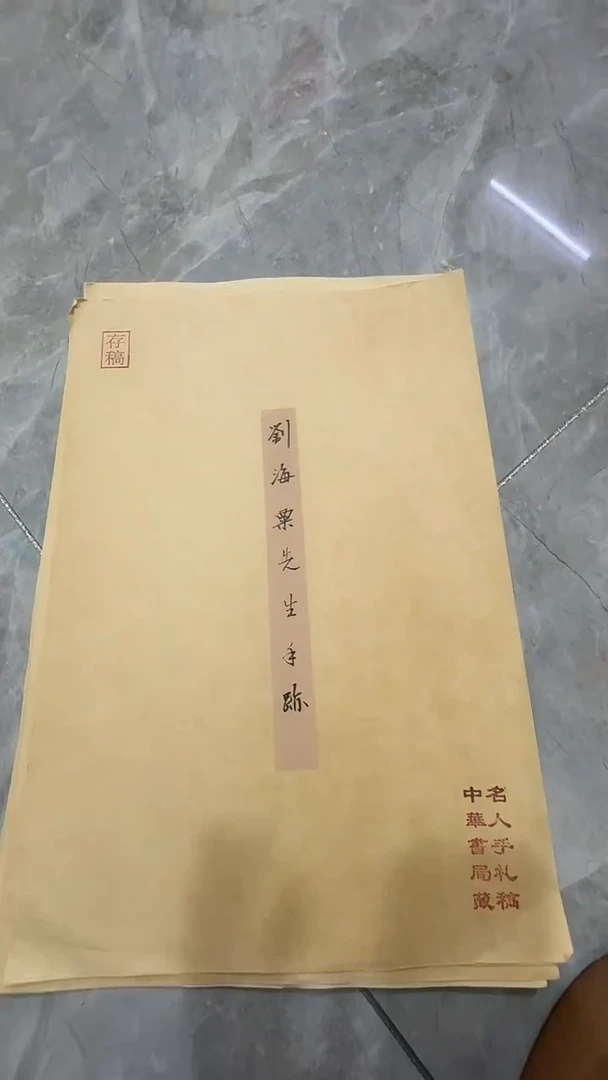 存稿
劉海粟先生手跡
名人手札稿
中華書局藏